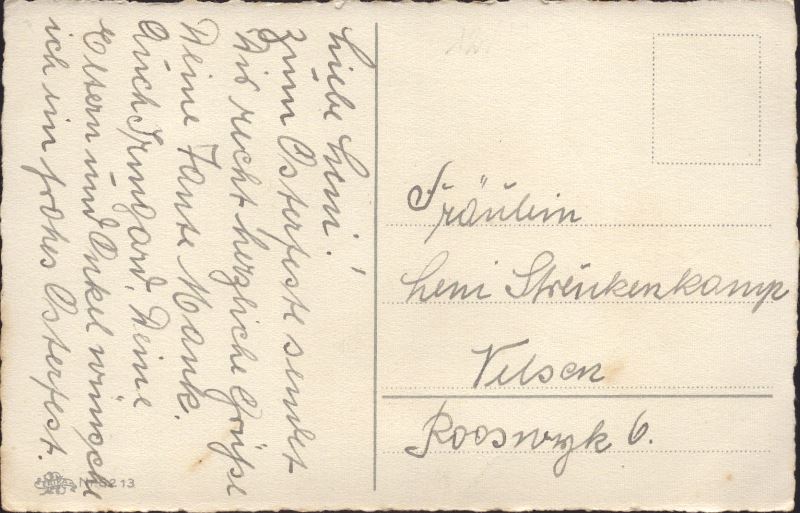 Liebe Leni!
zum Osterfeste sendet
Dir recht herzliche Grüße
Deine Tante Mank.
Auch Irmgard, Deine
Eltern und Onkel wünsche
ich ein frohes Osterfest.
Fräulein
Leni Streukenkamp
Velsen
Rooswyk 6.
Nr 5213